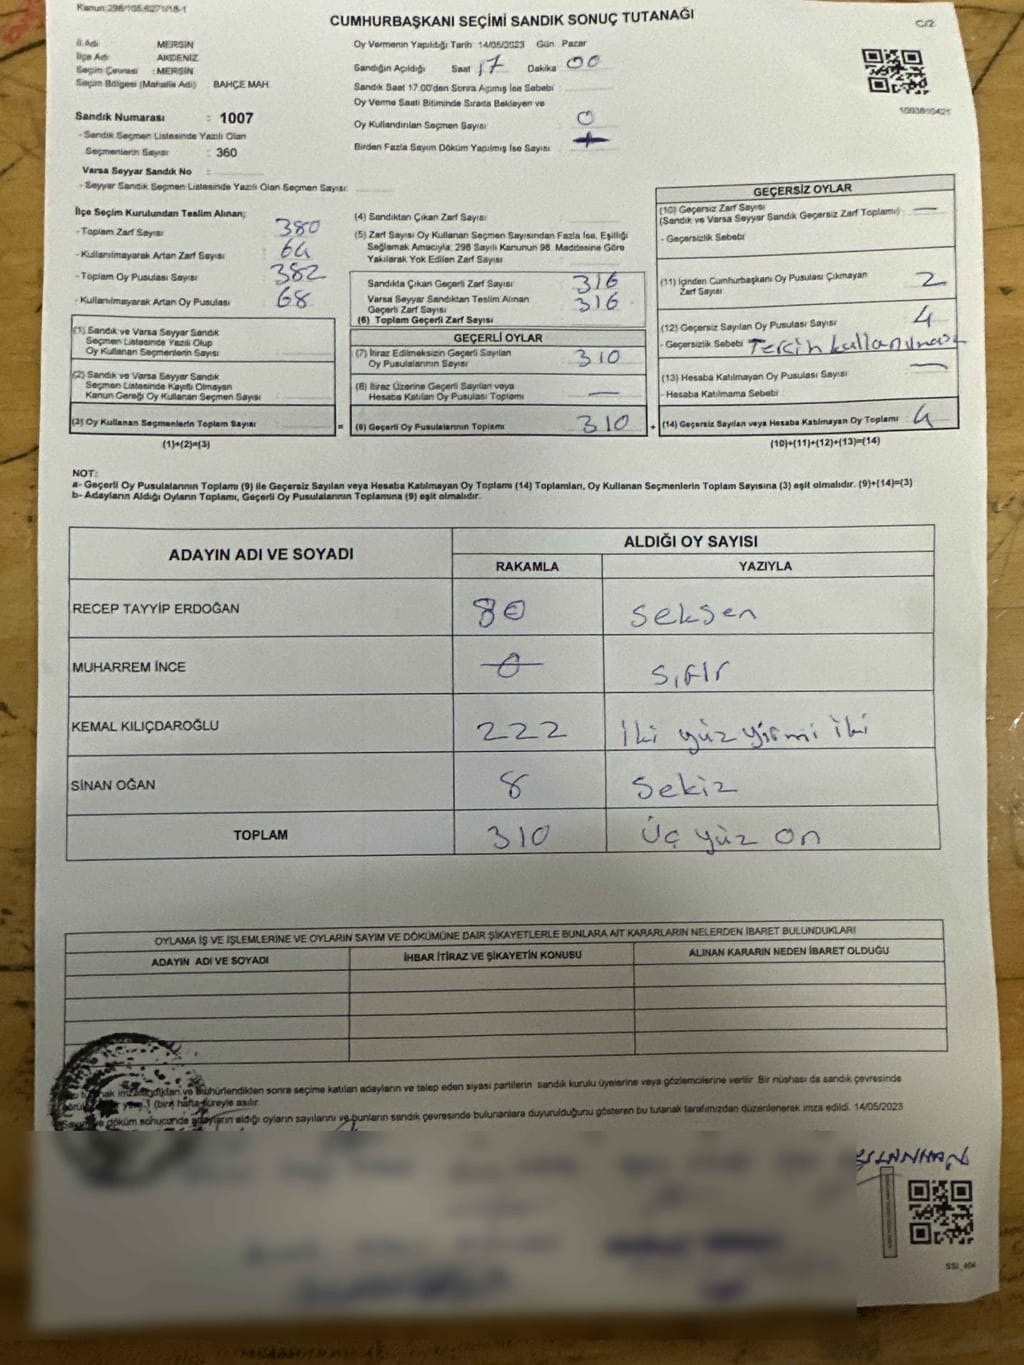 Kanun:298/105-6271/18-1
CUMHURBAŞKANI SEÇİMİ SANDIK SONUÇ TUTANAĞI
C/2
İl Adı MERSİN
İlçe Adı AKDENİZ
Seçim Çevresi : MERSİN
Seçim Bölgesi (Mahalle Adı) BAHÇE MAH.
Sandık Numarası : 1007
- Sandık Seçmen Listesinde Yazılı Olan
Seçmenlerin Sayısı : 360
Varsa Seyyar Sandık No :
- Seyyar Sandık Seçmen Listesinde Yazılı Olan Seçmen Sayısı:
Oy Vermenin Yapıldığı Tarih 14/05/2023 Gün Pazar
Sandığın Açıldığı Saat 17 Dakika 00
Sandık Saat 17.00'den Sonra Açılmış İse Sebebi :
Oy Verme Saati Bitiminde Sırada Bekleyen ve
Oy Kullandırılan Seçmen Sayısı 0
Birden Fazla Sayım Döküm Yapılmış İse Sayısı
İlçe Seçim Kurulundan Teslim Alınan;
- Toplam Zarf Sayısı 380
- Kullanılmayarak Artan Zarf Sayısı 64
- Toplam Oy Pusulası Sayısı 382
- Kullanılmayarak Artan Oy Pusulası 68
(1) Sandık ve Varsa Seyyar Sandık
Seçmen Listesinde Yazılı Olup
Oy Kullanan Seçmenlerin Sayısı
(2) Sandık ve Varsa Seyyar Sandık
Seçmen Listesinde Kayıtlı Olmayan
Kanun Gereği Oy Kullanan Seçmen Sayısı
(3) Oy Kullanan Seçmenlerin Toplam Sayısı
(1)+(2)=(3)
(4) Sandıktan Çıkan Zarf Sayısı
(5) Zarf Sayısı Oy Kullanan Seçmen Sayısından Fazla İse, Eşitliği
Sağlamak Amacıyla; 298 Sayılı Kanunun 98. Maddesine Göre
Yakılarak Yok Edilen Zarf Sayısı
Sandıkta Çıkan Geçerli Zarf Sayısı 316
Varsa Seyyar Sandıktan Teslim Alınan
Geçerli Zarf Sayısı 316
(6) Toplam Geçerli Zarf Sayısı
GEÇERLİ OYLAR
(7) İtiraz Edilmeksizin Geçerli Sayılan
Oy Pusulalarının Sayısı 310
(8) İtiraz Üzerine Geçerli Sayılan veya
Hesaba Katılan Oy Pusulası Toplamı —
= (9) Geçerli Oy Pusulalarının Toplamı 310 +
GEÇERSİZ OYLAR
(10) Geçersiz Zarf Sayısı —
(Sandık ve Varsa Seyyar Sandık Geçersiz Zarf Toplamı)
- Geçersizlik Sebebi
(11) İçinden Cumhurbaşkanı Oy Pusulası Çıkmayan
Zarf Sayısı 2
(12) Geçersiz Sayılan Oy Pusulası Sayısı 4
- Geçersizlik Sebebi
(13) Hesaba Katılmayan Oy Pusulası Sayısı —
- Hesaba Katılmama Sebebi
(14) Geçersiz Sayılan veya Hesaba Katılmayan Oy Toplamı 4
(10)+(11)+(12)+(13)=(14)
NOT:
a- Geçerli Oy Pusulalarının Toplamı (9) ile Geçersiz Sayılan veya Hesaba Katılmayan Oy Toplamı (14) Toplamları, Oy Kullanan Seçmenlerin Toplam Sayısına (3) eşit olmalıdır. (9)+(14)=(3)
b- Adayların Aldığı Oyların Toplamı, Geçerli Oy Pusulalarının Toplamına (9) eşit olmalıdır.
ADAYIN ADI VE SOYADI ALDIĞI OY SAYISI
RAKAMLA YAZIYLA
RECEP TAYYİP ERDOĞAN 80 Seksen
MUHARREM İNCE 0 Sıfır
KEMAL KILIÇDAROĞLU 222 İki yüz yirmi iki
SİNAN OĞAN 8 Sekiz
TOPLAM 310 Üç yüz on
OYLAMA İŞ VE İŞLEMLERİNE VE OYLARIN SAYIM VE DÖKÜMÜNE DAİR ŞİKAYETLERLE BUNLARA AİT KARARLARIN NELERDEN İBARET BULUNDUKLARI
ADAYIN ADI VE SOYADI İHBAR İTİRAZ VE ŞİKAYETİN KONUSU ALINAN KARARIN NEDEN İBARET OLDUĞU
mühürlendikten sonra seçime katılan adayların ve talep eden siyasi partilerin sandık kurulu üyelerine veya gözlemcilerine verilir. Bir nüshası da sandık çevresinde
1 (bir) hafta süreyle asılır.
Sayım ve döküm sonucunda adayların aldığı oyların sayılarını ve bunların sandık çevresinde bulunanlara duyurulduğunu gösteren bu tutanak tarafımızdan düzenlenerek imza edildi. 14/05/2023
SSI_404